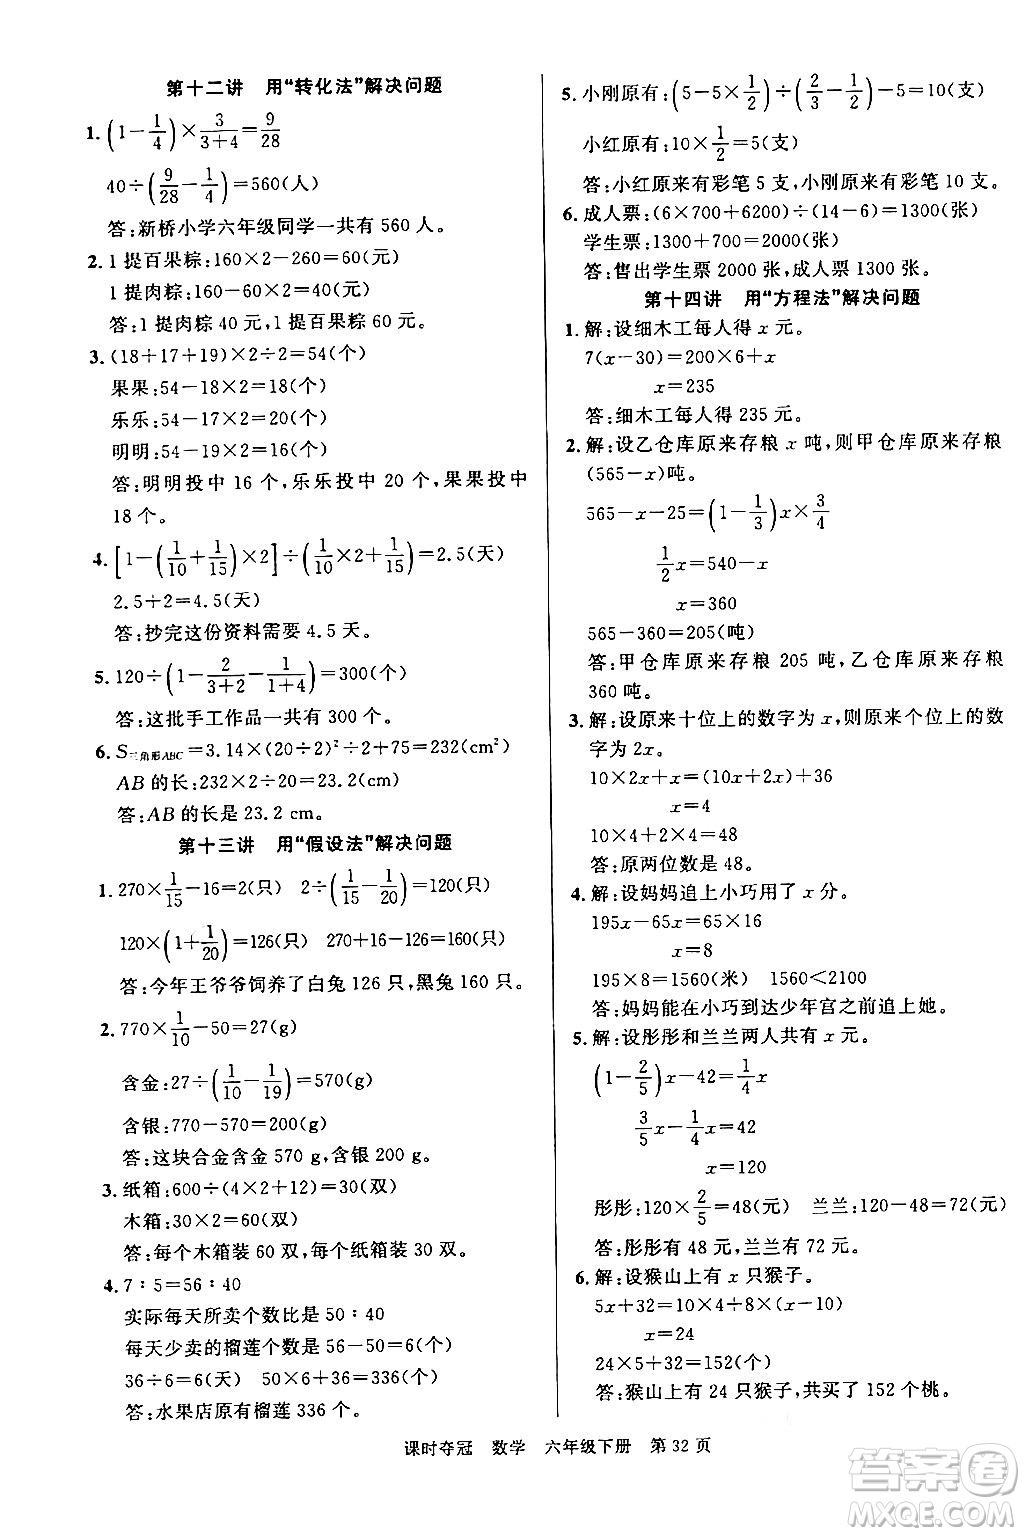 第十二讲 用“转化法”解决问题
1. (1-1/4)×3/(3+4)=9/28
40÷(9/28-1/4)=560(人)
答:新桥小学六年级同学一共有 560 人。
2. 1 提百果粽:160×2-260=60(元)
1 提肉粽:160-60×2=40(元)
答:1 提肉粽 40 元,1 提百果粽 60 元。
3. (18+17+19)×2÷2=54(个)
果果:54-18×2=18(个)
乐乐:54-17×2=20(个)
明明:54-19×2=16(个)
答:明明投中 16 个,乐乐投中 20 个,果果投中
18 个。
4. [1-(1/10+1/15)×2]÷(1/10×2+1/15)=2.5(天)
2.5+2=4.5(天)
答:抄完这份资料需要 4.5 天。
5. 120÷(1-2/(3+2)-1/(1+4))=300(个)
答:这批手工作品一共有 300 个。
6. S三角形ABC=3.14×(20÷2)²÷2+75=232(cm²)
AB 的长:232×2÷20=23.2(cm)
答:AB 的长是 23.2 cm。
第十三讲 用“假设法”解决问题
1. 270×1/15-16=2(只) 2÷(1/15-1/20)=120(只)
120×(1+1/20)=126(只) 270+16-126=160(只)
答:今年王爷爷饲养了白兔 126 只,黑兔 160 只。
2. 770×1/10-50=27(g)
含金:27÷(1/10-1/19)=570(g)
含银:770-570=200(g)
答:这块合金含金 570 g,含银 200 g。
3. 纸箱:600÷(4×2+12)=30(双)
木箱:30×2=60(双)
答:每个木箱装 60 双,每个纸箱装 30 双。
4. 7∶5=56∶40
实际每天所卖个数比是 50∶40
每天少卖的榴莲个数是 56-50=6(个)
36÷6=6(天) 56×6=336(个)
答:水果店原有榴莲 336 个。
5. 小刚原有:(5-5×1/2)÷(2/3-1/2)-5=10(支)
小红原有:10×1/2=5(支)
答:小红原来有彩笔 5 支,小刚原来有彩笔 10 支。
6. 成人票:(6×700+6200)÷(14-6)=1300(张)
学生票:1300+700=2000(张)
答:售出学生票 2000 张,成人票 1300 张。
第十四讲 用“方程法”解决问题
1. 解:设细木工每人得 x 元。
7(x-30)=200×6+x
x=235
答:细木工每人得 235 元。
2. 解:设乙仓库原来存粮 x 吨,则甲仓库原来存粮
(565-x)吨。
565-x-25=(1-1/3)x×3/4
1/2x=540-x
x=360
565-360=205(吨)
答:甲仓库原来存粮 205 吨,乙仓库原来存粮
360 吨。
3. 解:设原来十位上的数字为 x,则原来个位上的数
字为 2x。
10×2x+x=(10x+2x)+36
x=4
10×4+2×4=48
答:原两位数是 48。
4. 解:设妈妈追上小巧用了 x 分。
195x-65x=65×16
x=8
195×8=1560(米) 1560<2100
答:妈妈能在小巧到达少年宫之前追上她。
5. 解:设彤彤和兰兰两人共有 x 元。
(1-2/5)x-42=1/4x
3/5x-1/4x=42
x=120
彤彤:120×2/5=48(元) 兰兰:120-48=72(元)
答:彤彤有 48 元,兰兰有 72 元。
6. 解:设猴山上有 x 只猴子。
5x+32=10×4+8×(x-10)
x=24
24×5+32=152(个)
答:猴山上有 24 只猴子,共买了 152 个桃。
课时夺冠 数学 六年级下册 第 32 页
答案圈
MXQE.COM